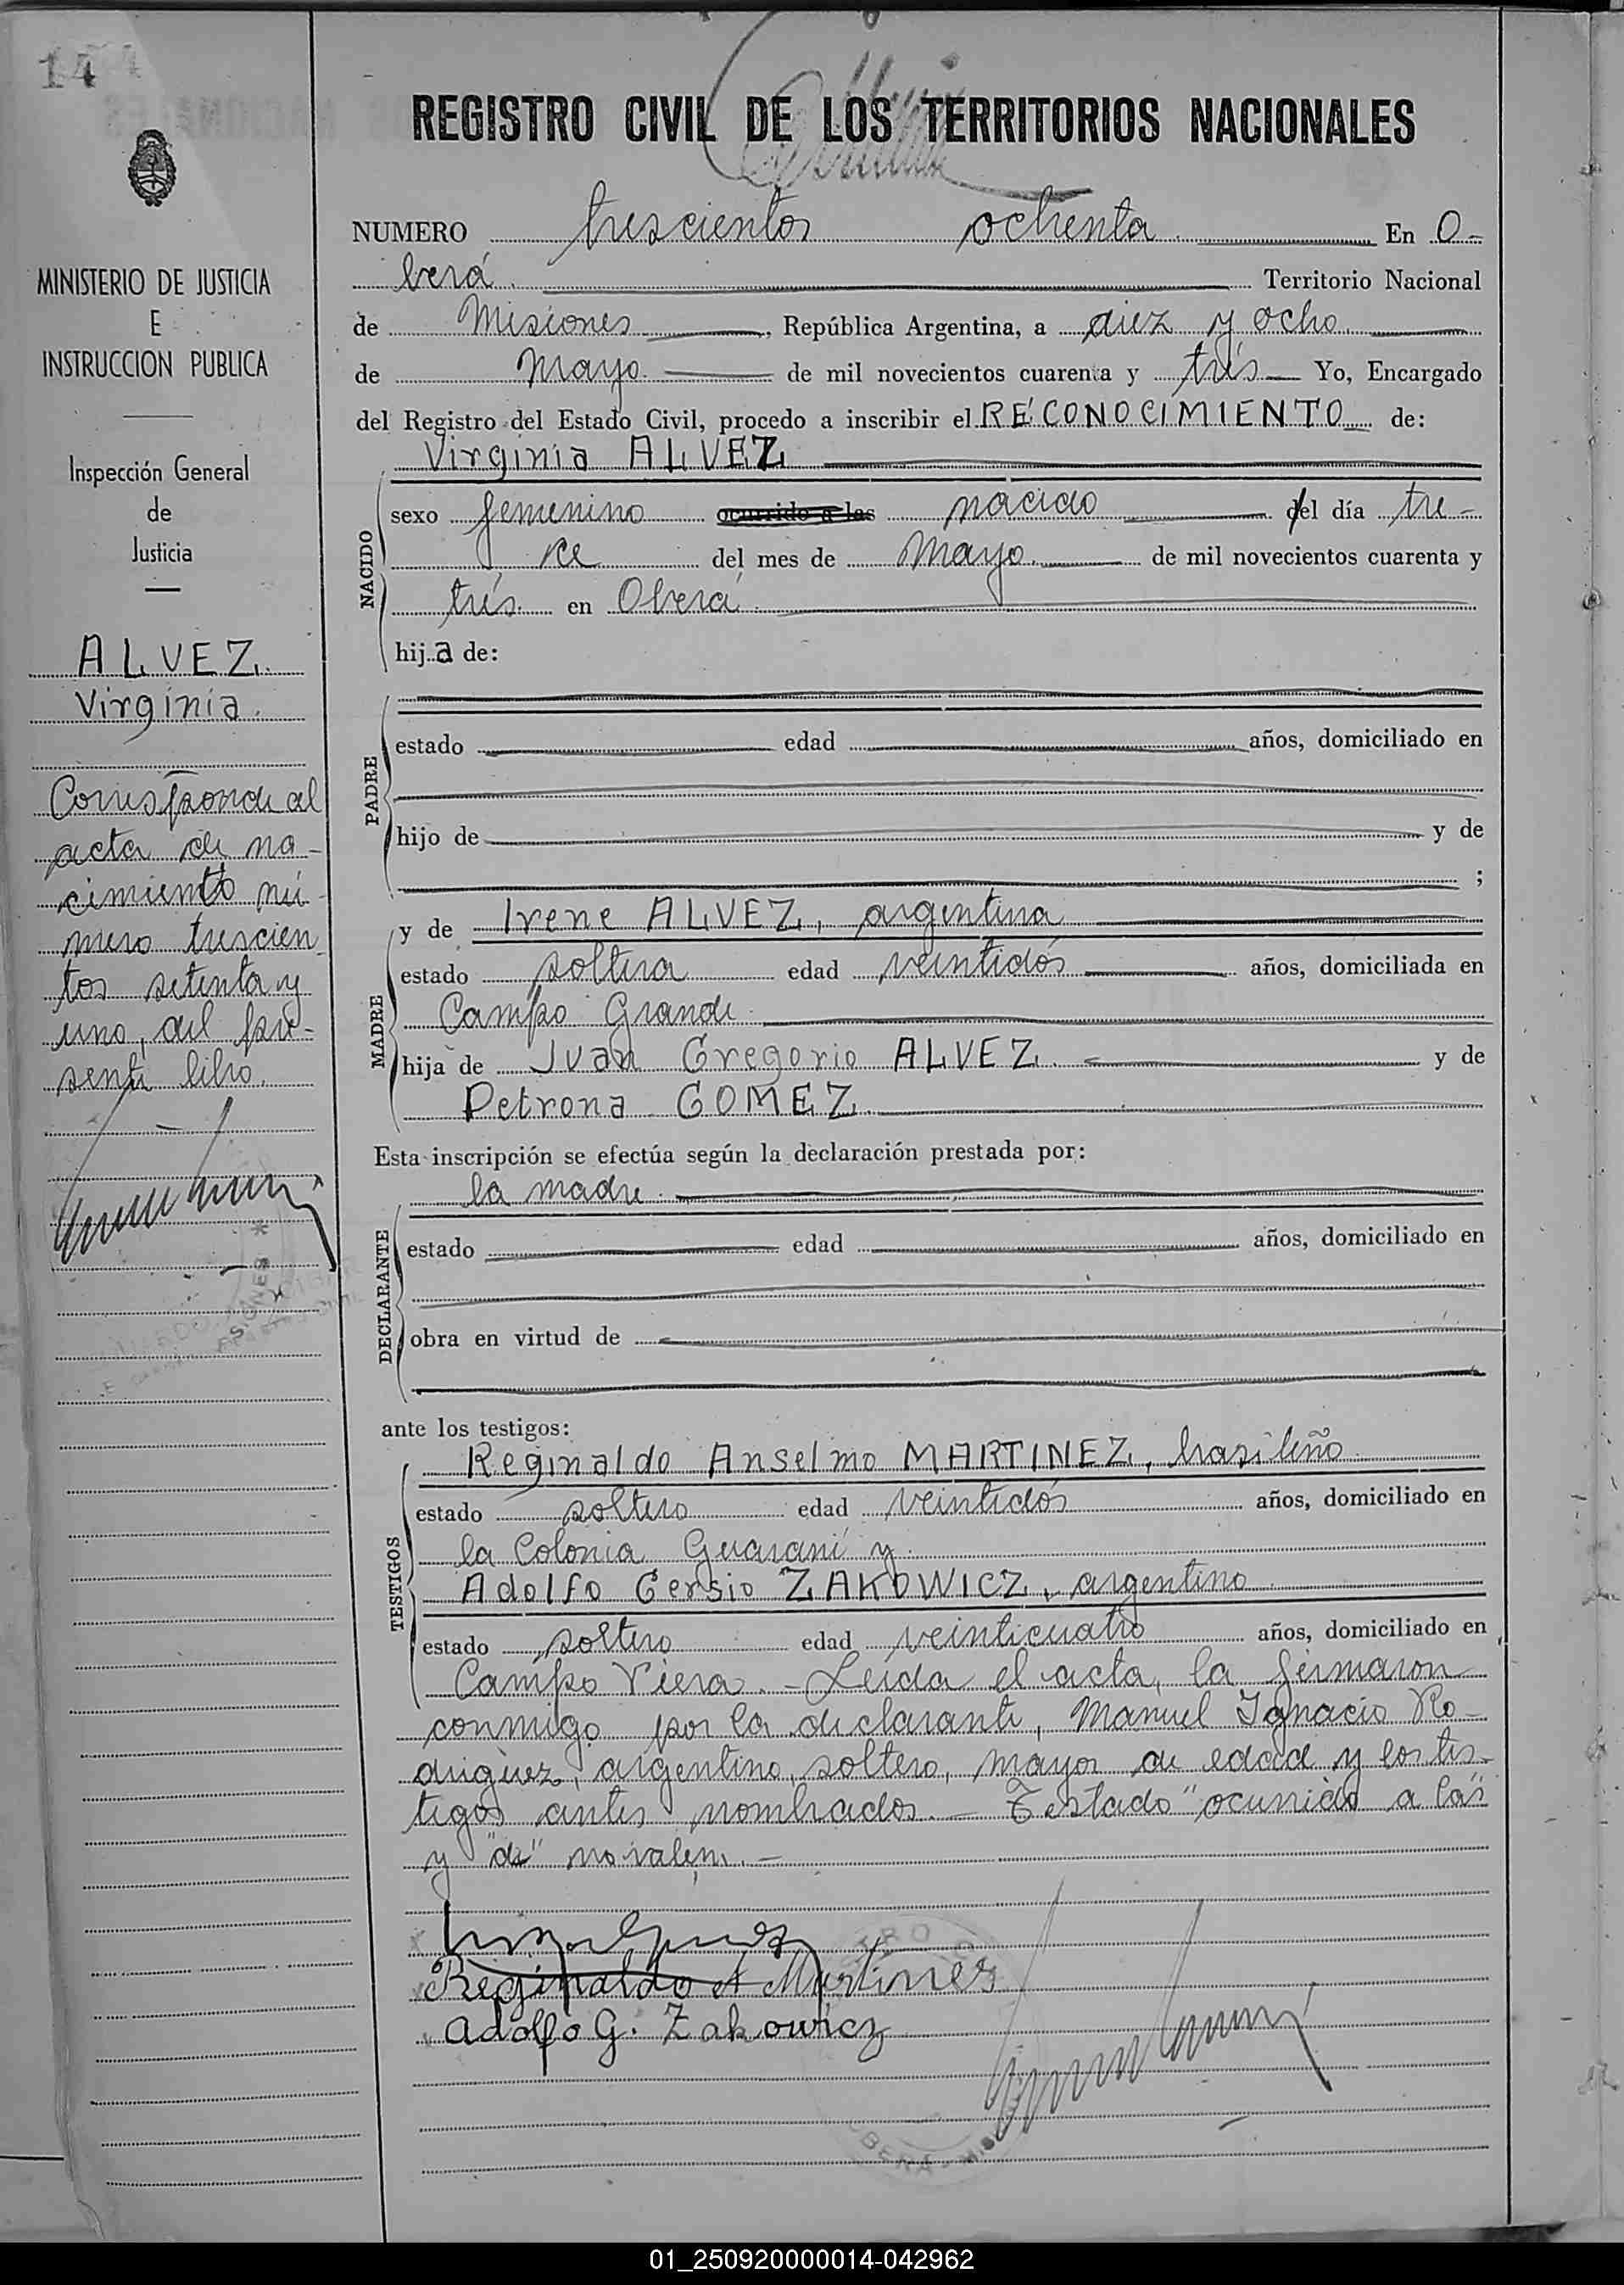 14
REGISTRO CIVIL DE LOS TERRITORIOS NACIONALES
MINISTERIO DE JUSTICIA
E
INSTRUCCION PUBLICA
Inspección General
de
Justicia
ALVEZ
Virginia.
Corresponde al
acta de na-
cimiento nú-
mero trescien
tos setenta y
uno, del pre-
sente libro.
NUMERO trescientos ochenta. En O-
berá. Territorio Nacional
de Misiones, República Argentina, a diez y ocho.
de Mayo. de mil novecientos cuarenta y trés Yo, Encargado
del Registro del Estado Civil, procedo a inscribir el RECONOCIMIENTO de:
Virginia ALVEZ
NACIDO
sexo femenino ocurrido a las nacido del día tre-
ce del mes de Mayo. de mil novecientos cuarenta y
trés. en Oberá.
hija de:
PADRE
estado edad años, domiciliado en
hijo de y de
;
MADRE
y de Irene ALVEZ, argentina
estado soltera edad veintidós años, domiciliada en
Campo Grande.
hija de Juan Gregorio ALVEZ. y de
Petrona GOMEZ.
Esta inscripción se efectúa según la declaración prestada por:
la madre.
DECLARANTE
estado edad años, domiciliado en
obra en virtud de
ante los testigos:
TESTIGOS
Reginaldo Anselmo MARTINEZ, brasileño
estado soltero edad veintidós años, domiciliado en
la Colonia Guaraní y
Adolfo Gersio ZAKOWICZ, argentino
estado soltero edad veinticuatro años, domiciliado en
Campo Viera.- Leída el acta, la firmaron
conmigo por la declarante, Manuel Ignacio Ro-
driguez, argentino, soltero, mayor de edad y los tes-
tigos antes nombrados.- Testado "ocurrido a las"
y "de" no valen.-
Reginaldo A Martinez
Adolfo G. Zakowicz
01_250920000014-042962